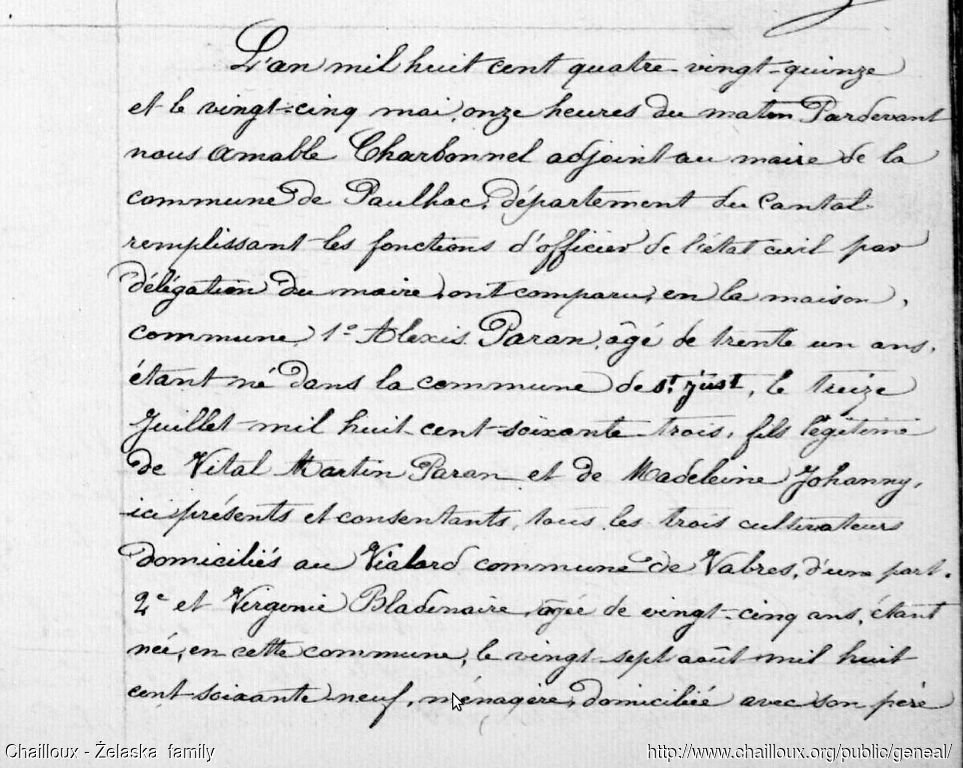 L'an mil huit cent quatre-vingt-quinze
et le vingt-cinq mai, onze heures du matin Pardevant
nous Amable Charbonnel adjoint au maire de la
commune de Paulhac, département du Cantal
remplissant les fonctions d'officier de l'état civil par
délégation du maire, ont comparu, en la maison,
commune 1º Alexis Paran, âgé de trente un ans,
étant né dans la commune de St Just, le treize
Juillet mil huit cent soixante trois, fils légitime
de Vital Martin Paran et de Madeleine Johanny,
ici présents et consentants, tous les trois cultivateurs
domiciliés au Vialard commune de Vabres, d'une part.
2º et Virginie Bladenaire, âgée de vingt-cinq ans, étant
née, en cette commune, le vingt-sept août mil huit
cent soixante neuf, ménagère, domiciliée avec son père
Chailloux - Żelaska family
http://www.chailloux.org/public/geneal/